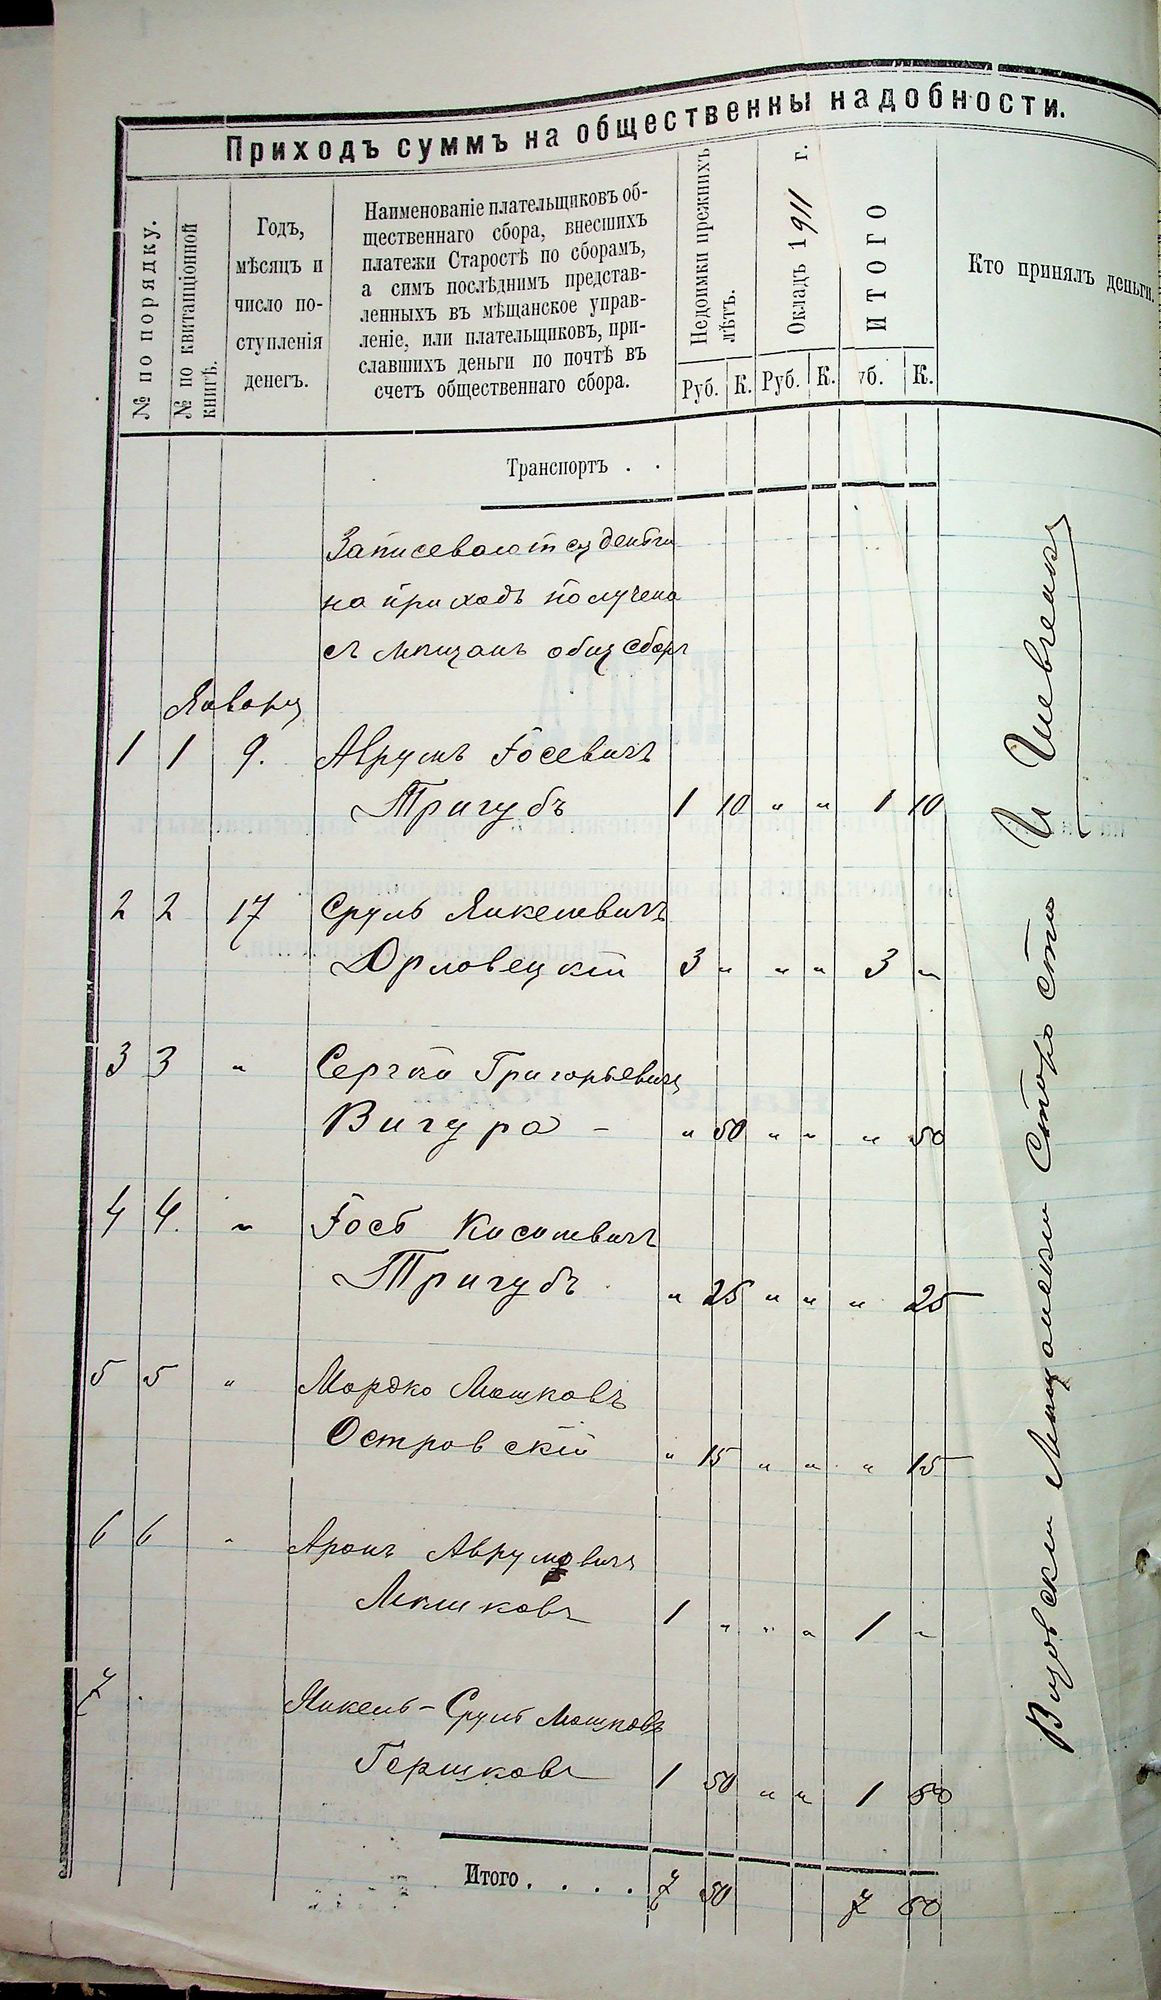 Приходъ суммъ на общественны надобности.
№ по порядку.
№ по квитанціонной
книгѣ.
Годъ,
мѣсяцъ и
число по-
ступленія
денегъ.
Наименованіе плательщиковъ об-
щественнаго сбора, внесшихъ
платежи Старостѣ по сборамъ,
а симъ послѣднимъ представ-
ленныхъ въ мѣщанское управ-
леніе, или плательщиковъ, при-
славшихъ деньги по почтѣ въ
счетъ общественнаго сбора.
Недоимки прежнихъ
лѣтъ.
Окладъ 1911 г.
ИТОГО
Кто принялъ деньги.
Руб. К. Руб. К. уб. К.
Транспортъ . .
Записеваются деньги
на приходъ получено
съ мещанъ общ сборъ
Январ
1 1 9. Аврумъ Іосевичъ
Тригубъ 1 10 " " 1 10
2 2 17 Сруль Янкелевичъ
Орловецкій 3 " " " 3 "
3 3 " Сергѣй Григорьевич
Вигура - " 50 " " " 50
4 4. " Іосъ
Тригубъ " 25 " " " 25
5 5 " Мордко Мошковъ
Островскій " 15 " " " 15
6 6 " Аронъ Аврумовичъ
1 " " " 1 "
7 Янкель-Сруль Мошковъ
Гершковъ 1 50 " " 1 50
Итого . . . . 7 50 7 50
Мещански Старосто И Шевченко